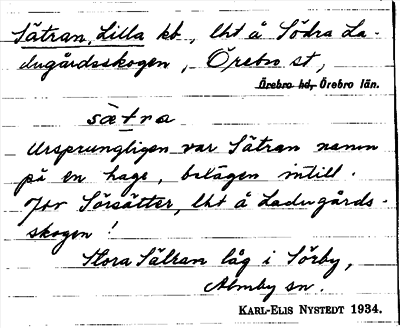 Sätran, Lilla kb., lht å Södra La-
dugårdsskogen, Örebro st,
Örebro hd, Örebro län.
sätra
Ursprungligen var Sätran namn
på en hage, belägen intill.
Jfr Sörsätter, lht å Ladugårds-
skogen!
Stora Sätran låg i Sörby,
Almby sn.
KARL-ELIS NYSTEDT 1934.